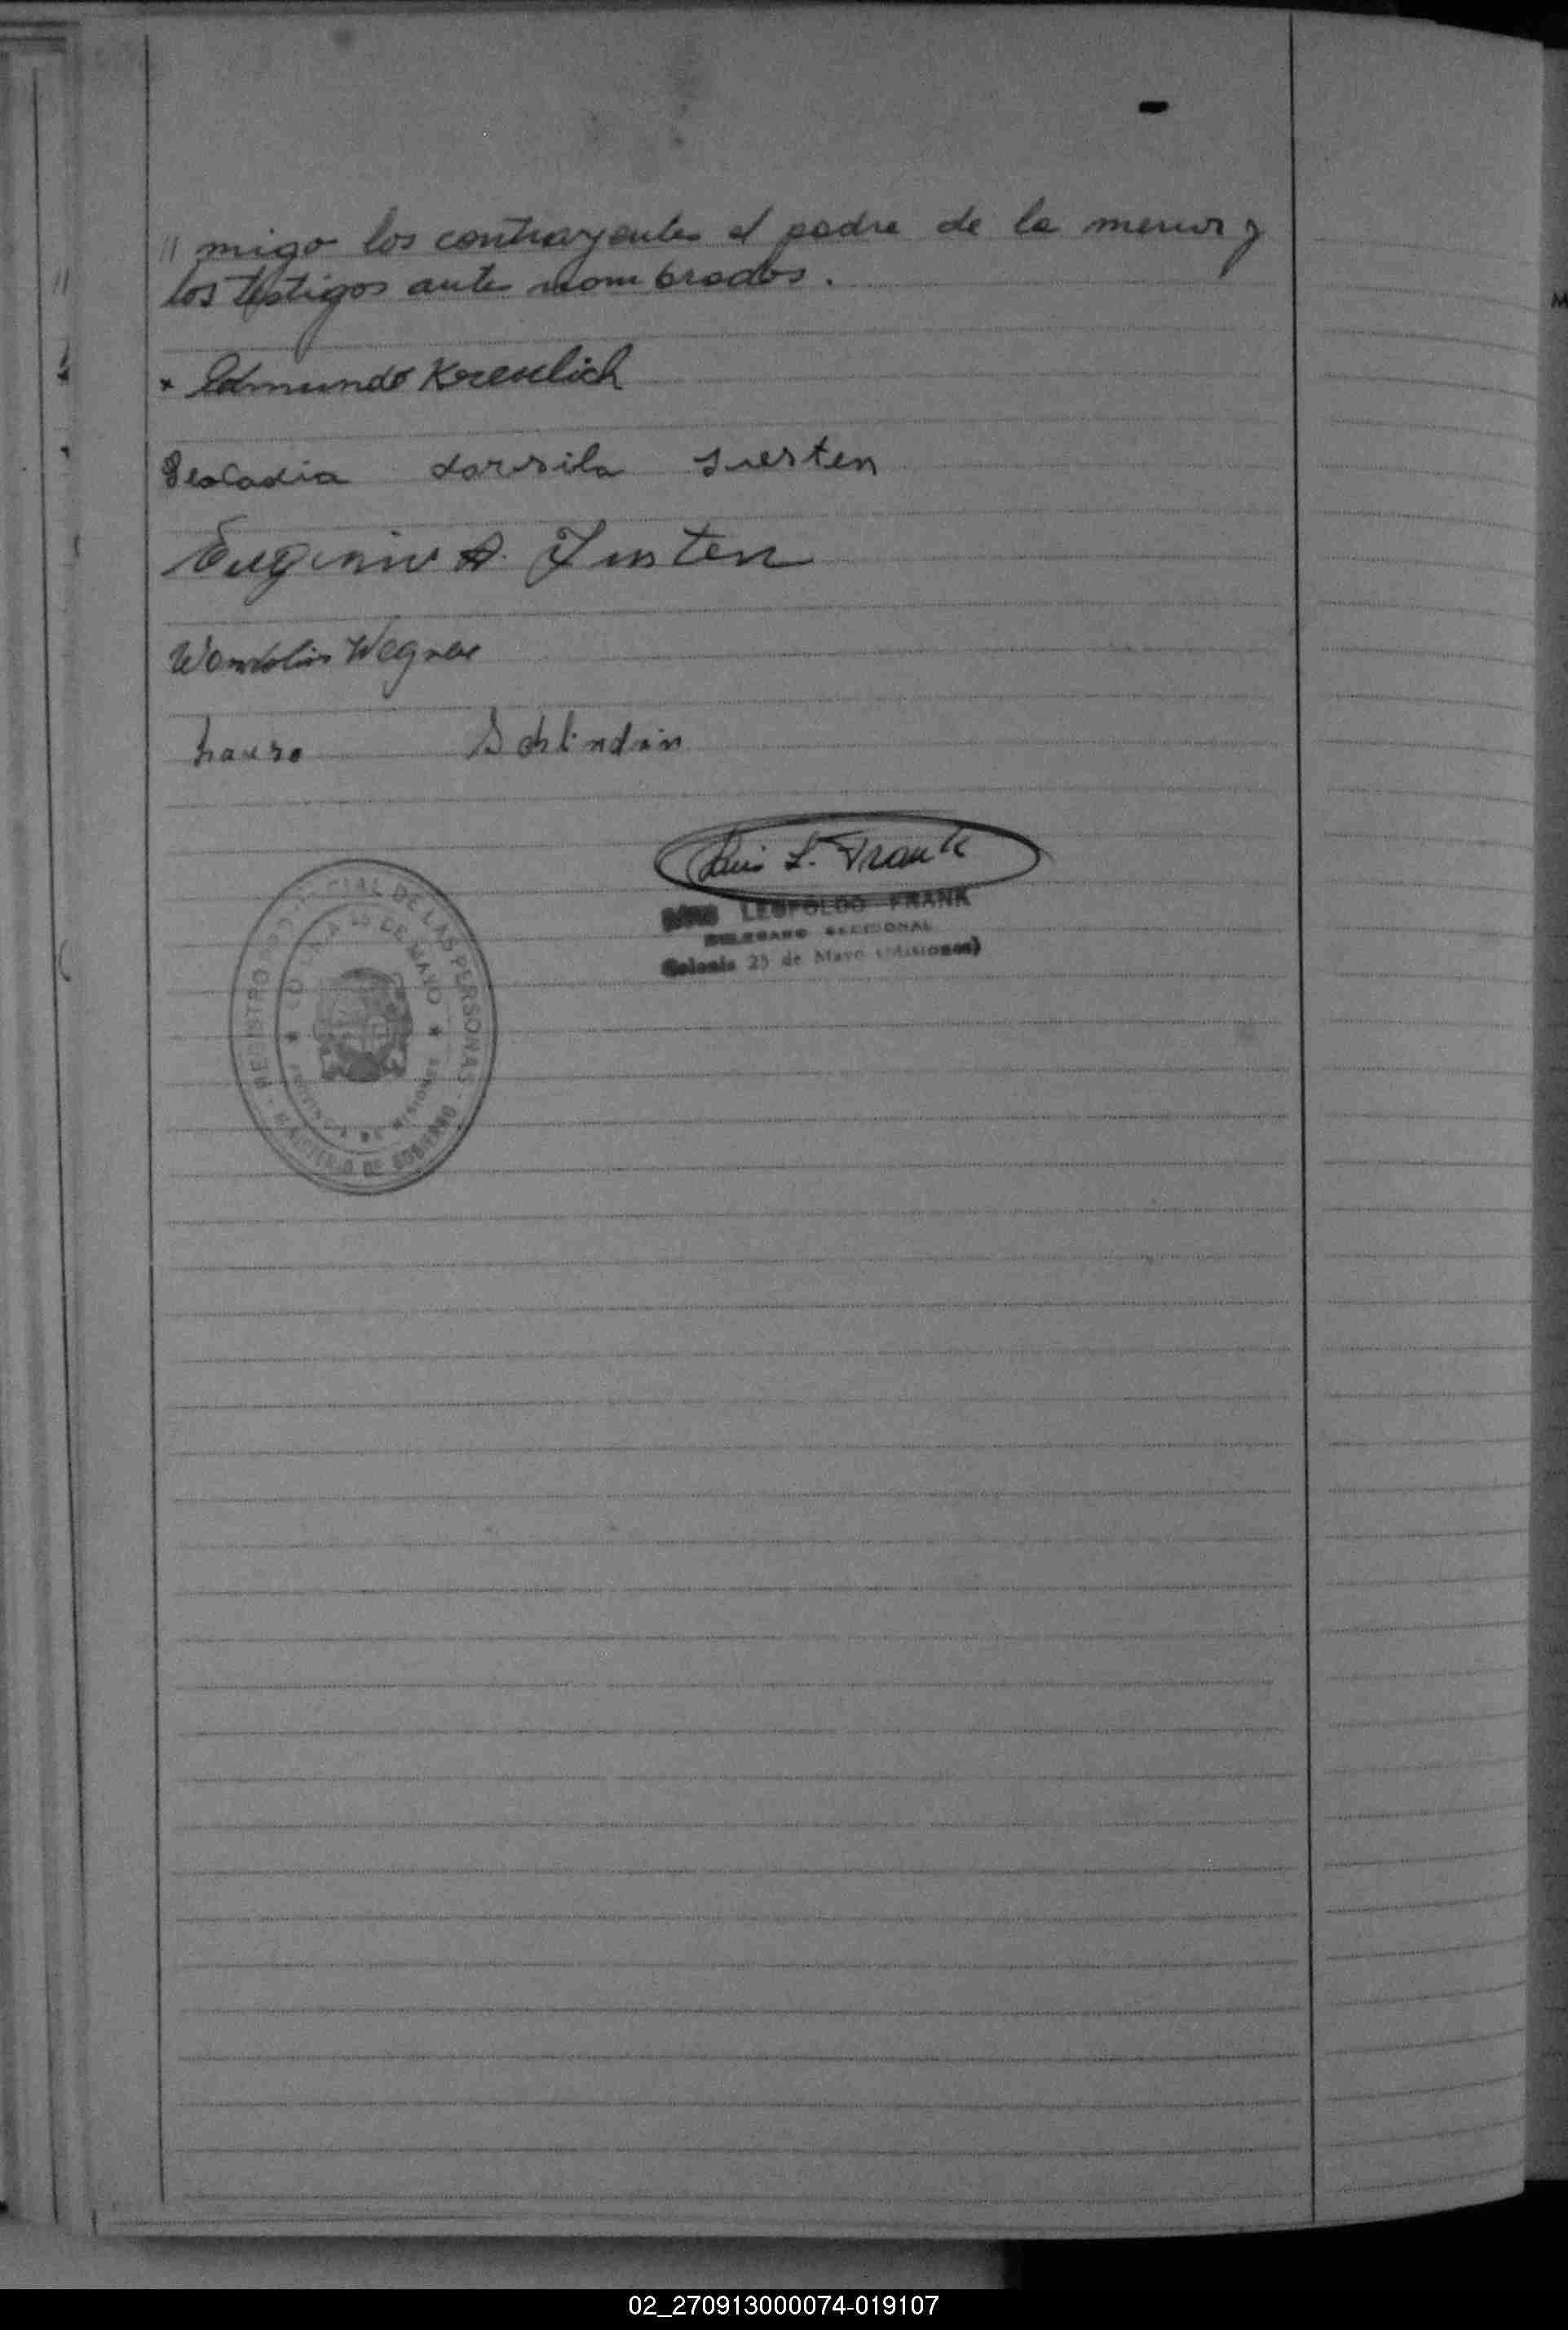 // migo los contrayentes el padre de la menor y
los testigos ante nombrados.
x Edmundo Kreuelich
Leocadia dorsila Justen
Eugenio A. Justen
Wendolin Wegner
Lauro Schlindvin
Luis L. Frank
LEOPOLDO FRANK
DELEGADO SECCIONAL
Colonia 25 de Mayo (Misiones)
REGISTRO PROVINCIAL DE LAS PERSONAS - MINISTERIO DE GOBIERNO
COLONIA 25 DE MAYO
PROVINCIA DE MISIONES
02_270913000074-019107